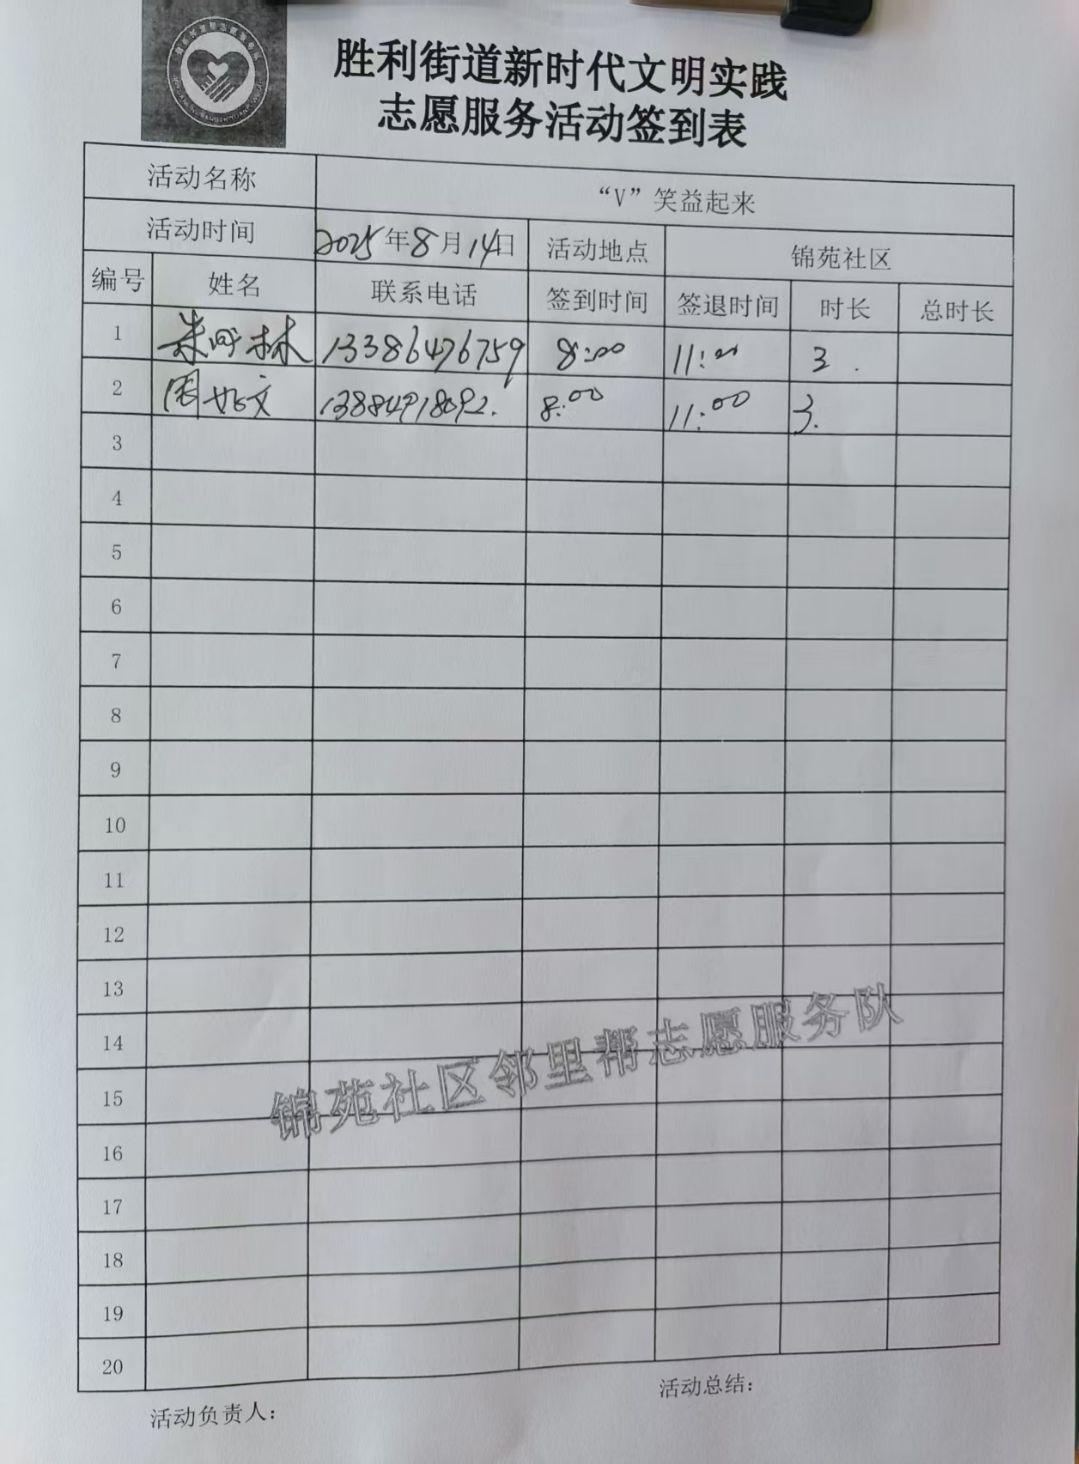 胜利街道新时代文明实践
志愿服务活动签到表
活动名称 “V”笑益起来
活动时间 2025年8月14日 活动地点 锦苑社区
编号 姓名 联系电话 签到时间 签退时间 时长 总时长
1 林 13386476759 8:00 11:00 3.
2 周 文 13884918092. 8:00 11:00 3.
3
4
5
6
7
8
9
10
11
12
13
14
15
16
17
18
19
20
锦苑社区邻里帮志愿服务队
活动负责人： 活动总结：